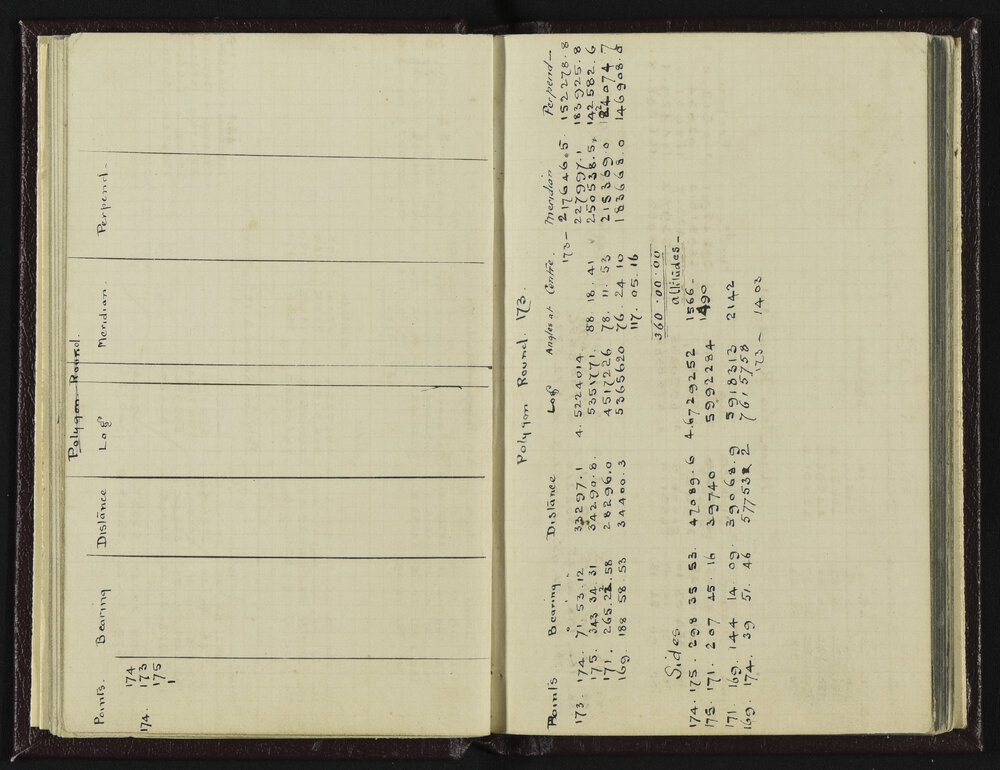 Polygon Round.
Points. Bearing Distance Log Meridian. Perpend-
174. 174
173
175
1
Polygon Round. 173.
Points Bearing Distance Log Angles at Centre. Meridian Perpend-
173- 217646.5. 152278.8
173. 174. 71. 53. 12 33297.1 4. 5224014 88 18. 41 227997.1 183925.8
175. 343 34. 31 34290.8. 5351771. 78. 11. 53 250538.5, 142582.6
171. 265. 22. 58 28296.0 4517226 76. 24 10 215369.0 124074.7
169. 188 58. 53 34400.3 5365620 117. 05. 16 183668.0 146908.8
360.00.00
Sides altitudes-
174. 175. 298 35 53. 47089.6 4.6729252 1566-
175. 171. 207 45. 16 39740 5992284 1490
171 169. 144 14. 09. 39068.9 5918313 2142
169. 174. 39 51. 46 57753 2 7615758
173- 1403